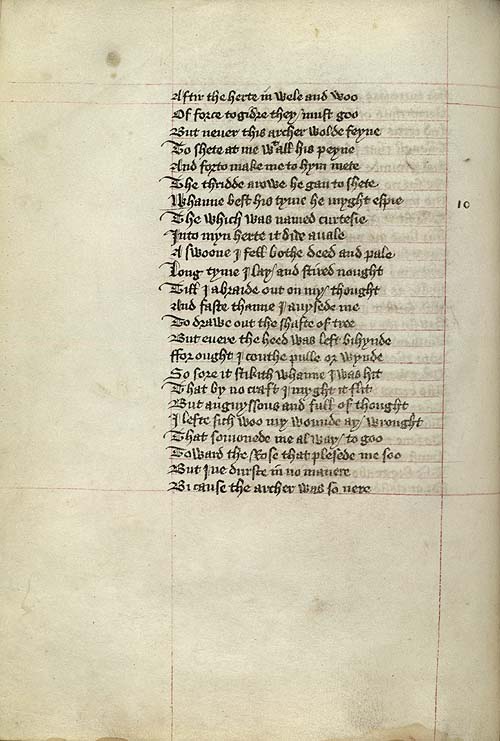 Aftir the herte in wele and woo
Of force togidre they / must goo
But neuer this archer wolde feyne
To shete at me wt all his peyne
And forto make me to hym mete
The thridde arowe he gan to shete
Whanne best his tyme he myght espie
The which was named curtesie
Into myn herte it dide auale
A swoone I fell bothe deed and pale
Long tyme I lay / and stired nought
Till I abraide out on my / thought
And faste thanne I auysede me
To drawe out the shafte of tree
But euere the heed was left bihynde
ffor ought I couthe pulle or wynde
So sore it stikith whanne I was hit
That by no craft I myght it flit
But anguyssous and full of thought
I lefte sich woo my wounde ay / wrought
That somonede me al way / to goo
Toward the Rose that plesede me soo
But I ne durste in no manere
Bi cause the archer was so nere
10